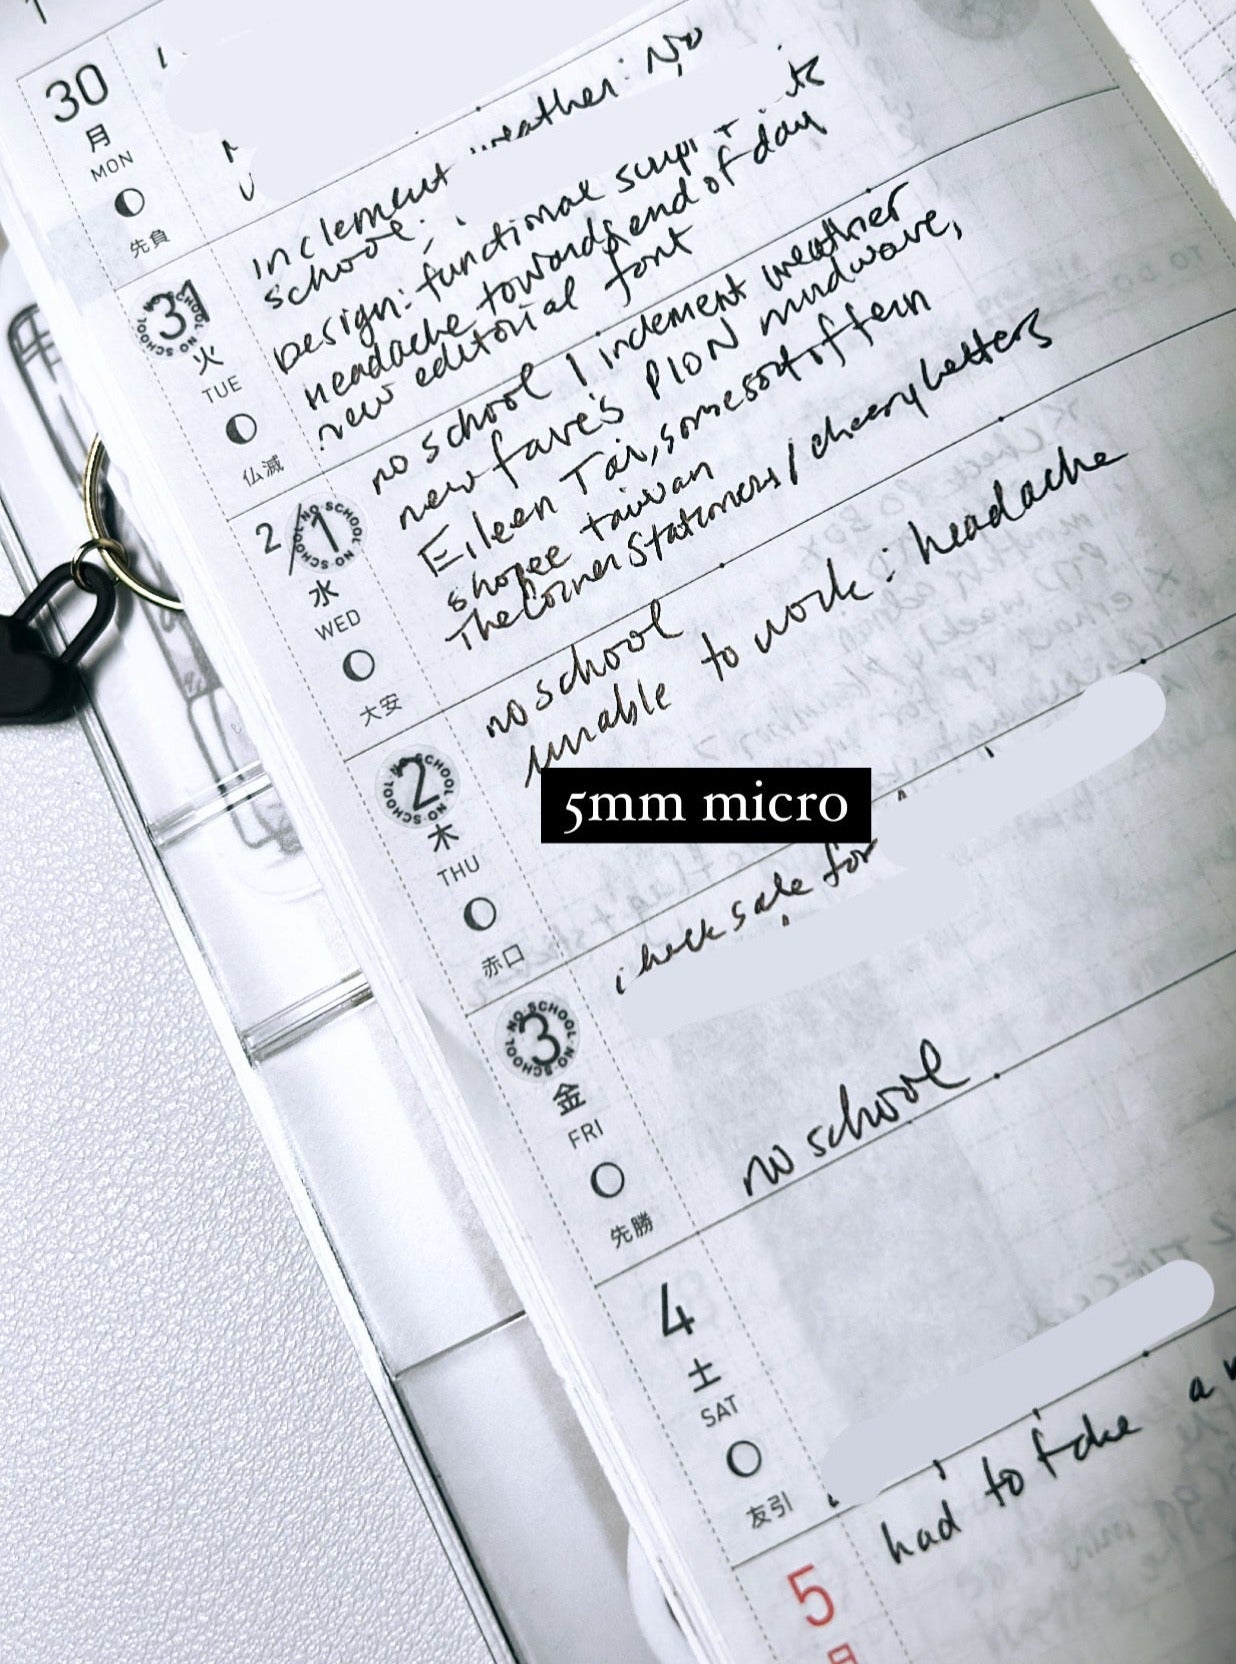 30
月
MON
先負
inclement weather: No
school;
Design: functional script
Headache towards end of day
new editorial font
31
NO SCHOOL · NO SCHOOL
火
TUE
仏滅
no school / inclement weather
new fave's PION mudwave,
Eileen Tai, some sort of fern
shopee taiwan
The Corner Stationers / cheery letters
2/1
NO SCHOOL · NO SCHOOL
水
WED
大安
no school
unable to work: headache
2
NO SCHOOL · NO SCHOOL
木
THU
赤口
5mm micro
check sale for
3
NO SCHOOL · NO SCHOOL
金
FRI
先勝
no school
4
土
SAT
友引
had to take a
5
TO DO